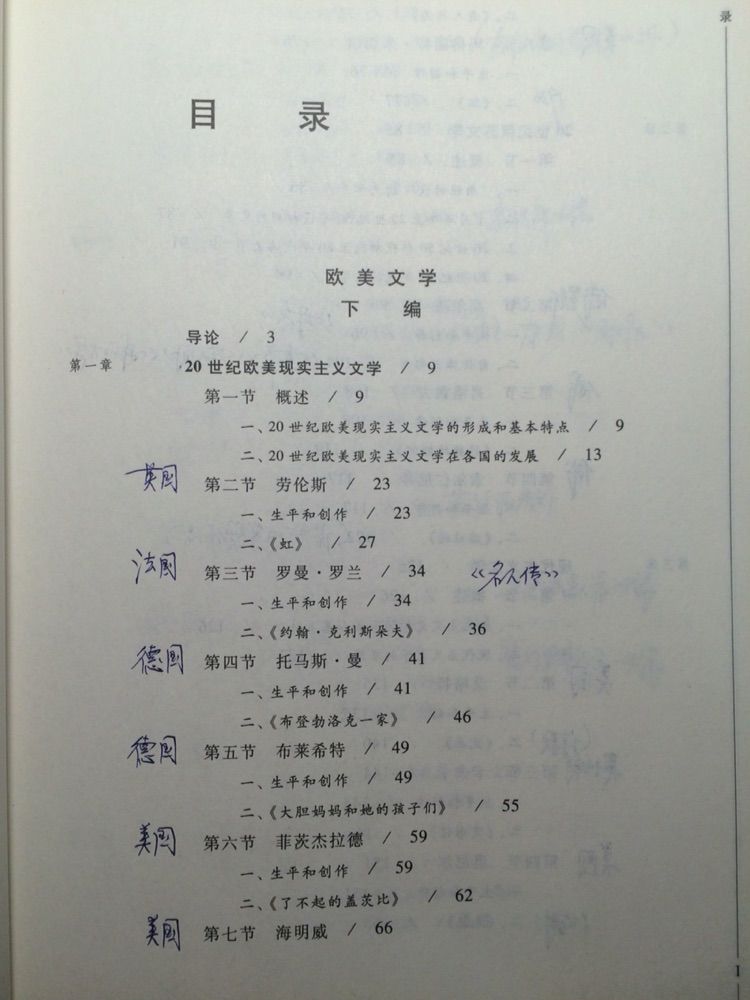 录
目 录
欧美文学
下 编
导论 / 3
第一章 20世纪欧美现实主义文学 / 9
第一节 概述 / 9
一、20世纪欧美现实主义文学的形成和基本特点 / 9
二、20世纪欧美现实主义文学在各国的发展 / 13
英国 第二节 劳伦斯 / 23
一、生平和创作 / 23
二、《虹》 / 27
法国 第三节 罗曼·罗兰 / 34 《名人传》
一、生平和创作 / 34
二、《约翰·克利斯朵夫》 / 36
德国 第四节 托马斯·曼 / 41
一、生平和创作 / 41
二、《布登勃洛克一家》 / 46
德国 第五节 布莱希特 / 49
一、生平和创作 / 49
二、《大胆妈妈和她的孩子们》 / 55
美国 第六节 菲茨杰拉德 / 59
一、生平和创作 / 59
二、《了不起的盖茨比》 / 62
美国 第七节 海明威 / 66
I